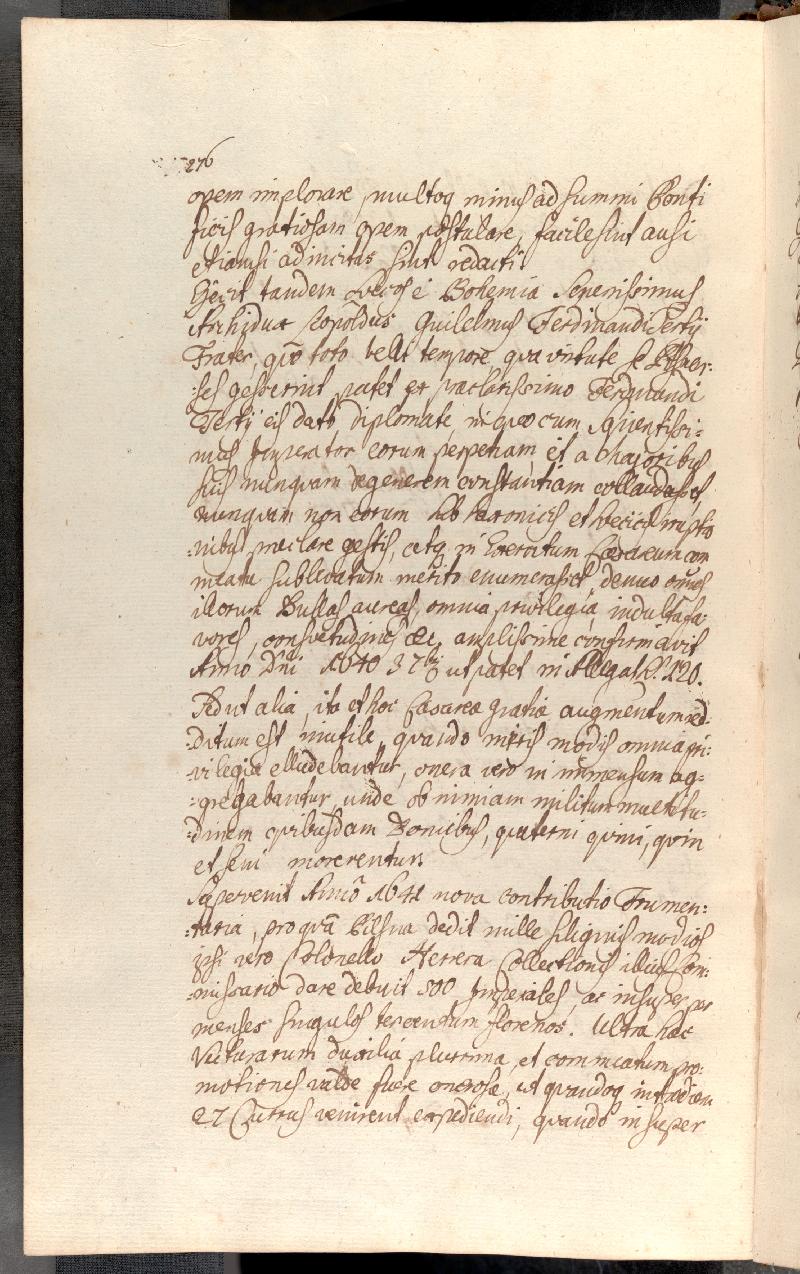 276
opem implorare, multoq minus ad Summi Ponti
ficis gratiosam opem postulare, facile sint ausi
etiamsi ad incitas sint redacti.
Ejecit tandem Svecos è Bohemia Serenissimus
Archidux Leopoldus Guilelmus Ferdinandi Tertij
Frater, quo toto belli tempore qua virtute se Pilsnen:
:ses gesserint patet ex praeclarissimo Ferdinandi
Tertij eis dato diplomate, in quo cum Sapientissi:
mus Imperator eorum perpetuam et a Majoribus
suis nunquam degenerem constantiam collaudasset,
nunquam non eorum sub Saxonicis et Svecicis irruptio
:nibus praeclare gestis, atq in Exercitum Caesareum com
meatu sublevatum merita enumerasset, denuo omnes
illorum Bullas aureas, omnia privilegia, indulta fa
vores, consvetudines &c. amplissime confirmavit
Anno Dni 1640 ut patet in Allegat. 120.
Sed ut alia, ita et hoc Caesareae gratiae augmentum red:
:ditum est inutile, quando miris modis omnia pri:
:vilegia elludebantur, onera vero in immensum ag:
:gregabantur, unde ob nimiam militum multitu:
:dinem quibusdam Domibus, quaterni quini, quin
et seni morerentur.
Supervenit Anno 1641 nova contributio Frumen:
:taria, pro qua Pilsna dedit mille siliginis modios
ipsi vero Colonello Herrera Collectionis illius Com:
:missario dare debuit 500 Imperiales, ac insuper per
menses singulos tercentum florenos. Ultra haec
Vecturarum auxilia plurima, et commeatum pro:
motiones valde fuere onerosae, ut quandoq in
27 Currus venirent expediendi, quando insuper